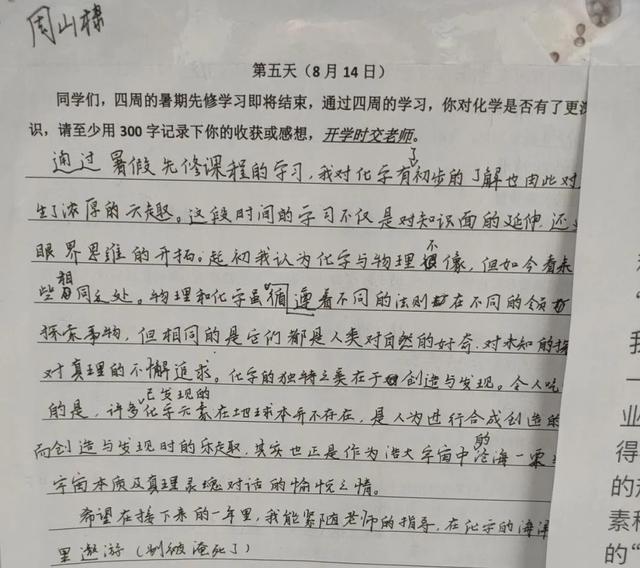 周山棣
第五天（8月14日）
同学们，四周的暑期先修学习即将结束，通过四周的学习，你对化学是否有了更
识，请至少用300字记录下你的收获或感想，开学时交老师。
通过暑假先修课程的学习，我对化学有了初步的了解也由此对
生了浓厚的兴趣。这段时间的学习不仅是对知识面的延伸，还
眼界思维的开拓。起初我认为化学与物理不很像，但如今看来
些相同之处。物理和化学虽循遵着不同的法则在不同的领
探索事物，但相同的是它们都是人类对自然的好奇，对未知的探
对真理的不懈追求。化学的独特之美在于创造与发现。令人吃
的是，许多已发现的化学元素在地球本并不存在，是人为进行合成创造的
而创造与发现时的乐趣，其实也正是作为浩大宇宙中的沧海一粟
宇宙本质及真理灵魂对话的愉悦之情。
希望在接下来的一年里，我能紧随老师的指导，在化学的海洋
里遨游（别被淹死了）
“
我
一
业
得
的
素
的“